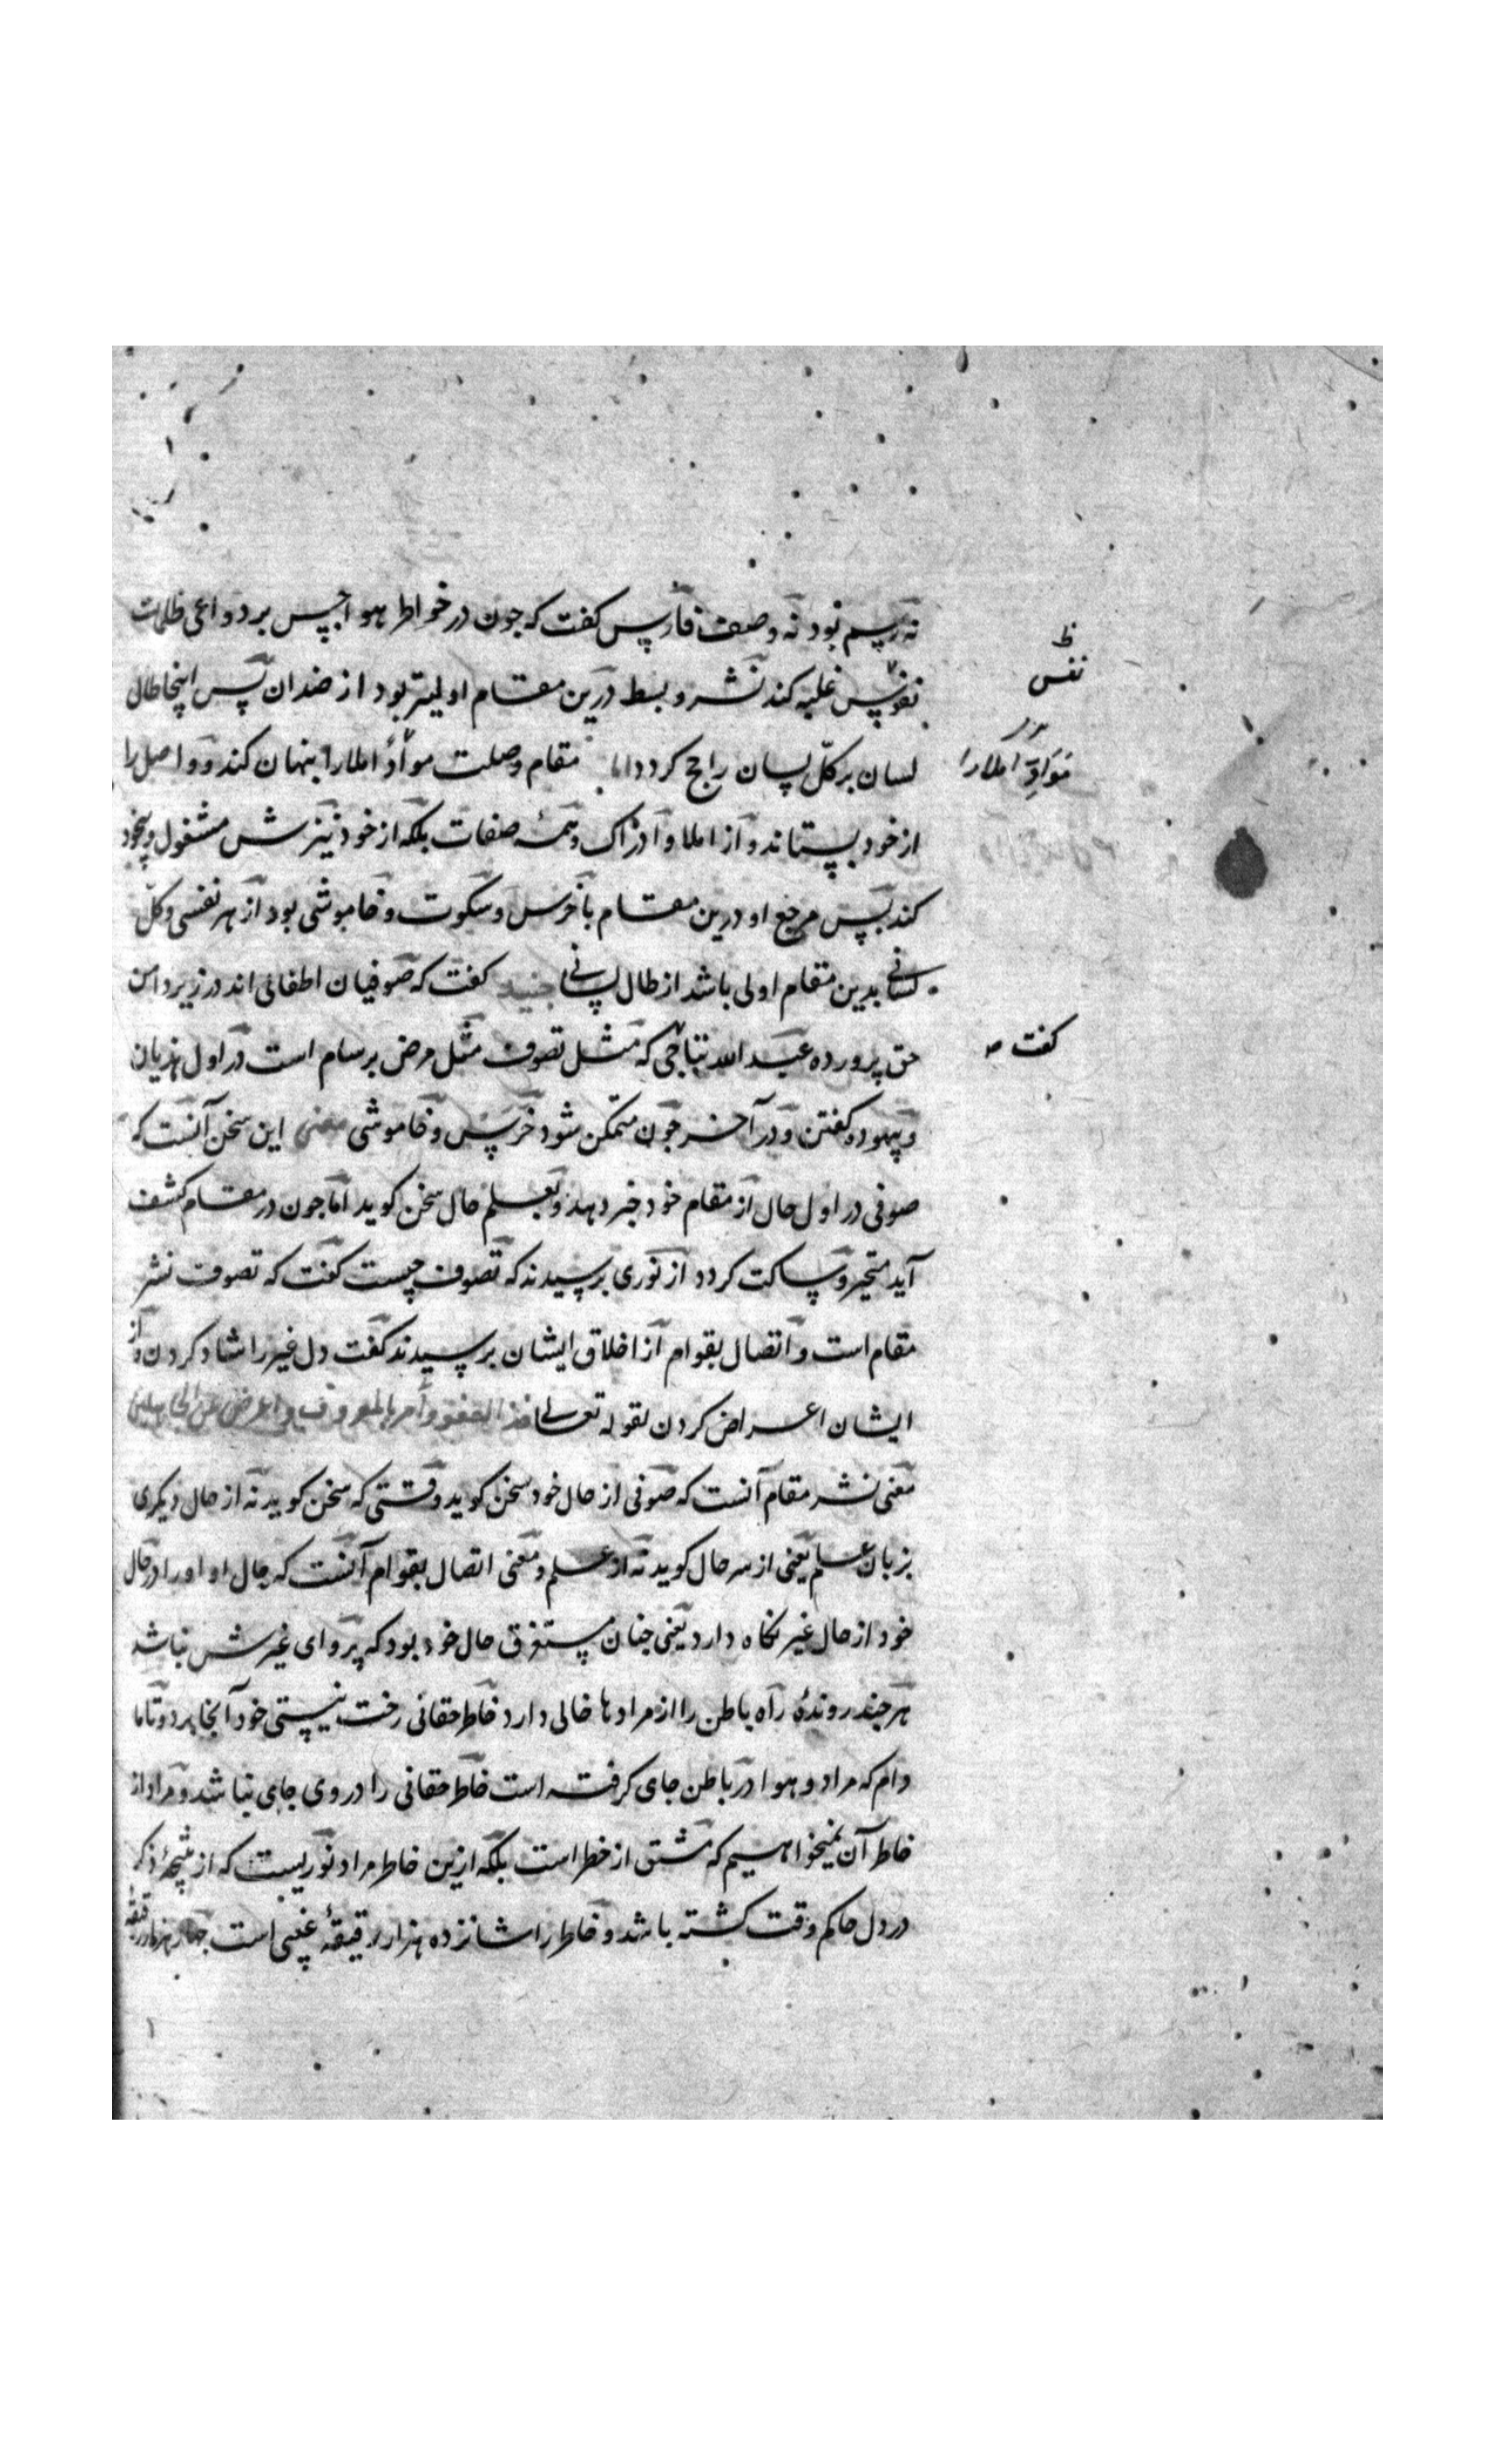 نه رسم بود نه وصف فارس کفت که جون در خواطر هواجس بر دواعی ظلمات
نفوس غلبه کند نشر و بسط درین مقام اولیتر بود از ضدان پس اینجا طال
لسان بر کلّ لسان راجح کردد اما مقام وصلت مواد املا را پنهان کند و واصل را
از خود بستاند و از املا و ادراک و همه صفات بلکه از خود نیزش مشغول و بیخود
کند پس مرجع او درین مقام با خرس و سکوت و خاموشی بود از هر نفسی و کلّ
لسانی بدین مقام اولی باشد از طال لسانی جنید کفت که صوفیان اطفالی اند در زیر دامن
حق پرورده عبد الله نباجی که مثل تصوف مثل مرض برسام است در اول هذیان
و بیهوده کفتن و در آخر جون متمکن شود خرس و خاموشی معنی این سخن آنست که
صوفی در اول حال از مقام خود خبر دهد و بعلم حال سخن کوید اما جون در مقام کشف
آید متحیر و ساکت کردد از نوری پرسیدند که تصوف چیست کفت که تصوف نشر
مقام است و اتصال بقوام از اخلاق ایشان پرسیدند کفت دل غیر را شاد کردن و از
ایشان اعراض کردن لقوله تعالی خذ العفو و أمر بالمعروف و اعرض عن الجاهلین
معنی نشر مقام آنست که صوفی از حال خود سخن کوید وقتی که سخن کوید نه از حال دیکری
بزبان علم یعنی از سر حال کوید نه از علم و معنی اتصال بقوام آنست که حال او او را در حال
خود از حال غیر نکاه دارد یعنی جنان مستغرق حال خود بود که پروای غیرش نباشد
هر جند روندهٔ راه باطن را از مرادها خالی دارد خاطر حقانی رخت نیستی خود آنجا برد و تا ما
دام که مراد و هوا در باطن جای کرفته است خاطر حقانی را در وی جای نباشد و مراد از
خاطر آن نمیخواهیم که مشتق از خطر است بلکه ازین خاطر مراد نوریست که از نتیجهٔ ذکر
در دل حاکم وقت کشته باشد و خاطر را شانزده هزار رقیقهٔ غیبی است جهار هزار رقیقه
ظ
نفس
املا را
کفت صح